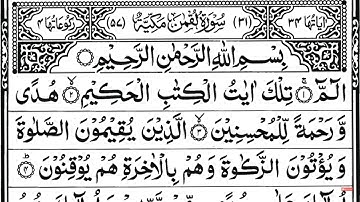 اٰيَاتُهَا ٣٤ (٣١) سُوْرَةُ لُقْمٰنَ مَكِّيَّةٌ (٥٧) رُكُوْعَاتُهَا ٤
بِسْمِ اللّٰهِ الرَّحْمٰنِ الرَّحِيْمِ
الٓمّٓ ۚ‏١ تِلْكَ اٰيٰتُ الْكِتٰبِ الْحَكِيْمِ ۙ‏٢ هُدًى
وَّ رَحْمَةً لِّلْمُحْسِنِيْنَ ۙ‏٣ الَّذِيْنَ يُقِيْمُوْنَ الصَّلٰوةَ
وَ يُؤْتُوْنَ الزَّكٰوةَ وَ هُمْ بِالْاٰخِرَةِ هُمْ يُوْقِنُوْنَ ؕ‏٤